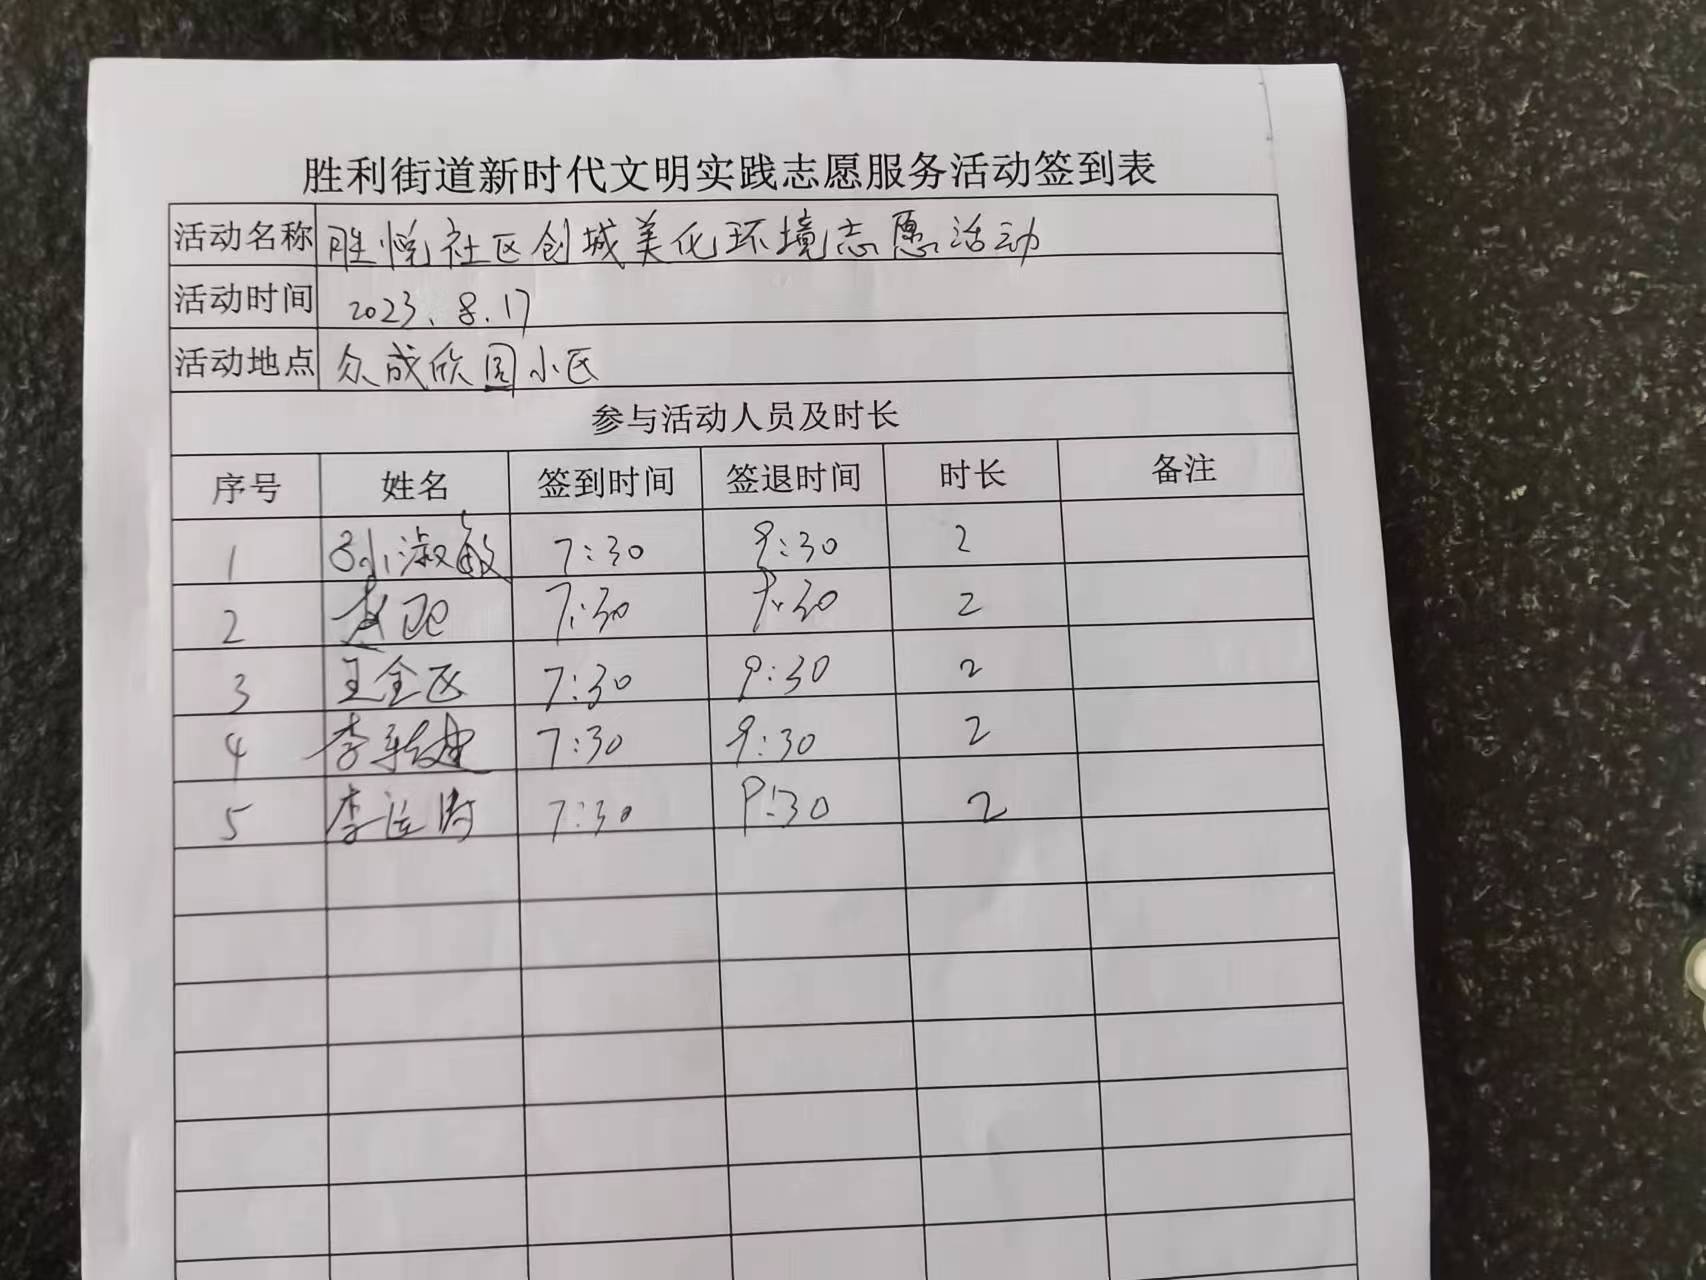 胜利街道新时代文明实践志愿服务活动签到表
活动名称 胜悦社区创城美化环境志愿活动
活动时间 2023.8.17
活动地点 众成欣园小区
参与活动人员及时长
序号 姓名 签到时间 签退时间 时长 备注
1 孙淑敏 7:30 9:30 2
2 7:30 9:30 2
3 王全 7:30 9:30 2
4 李 7:30 9:30 2
5 李 7:30 9:30 2